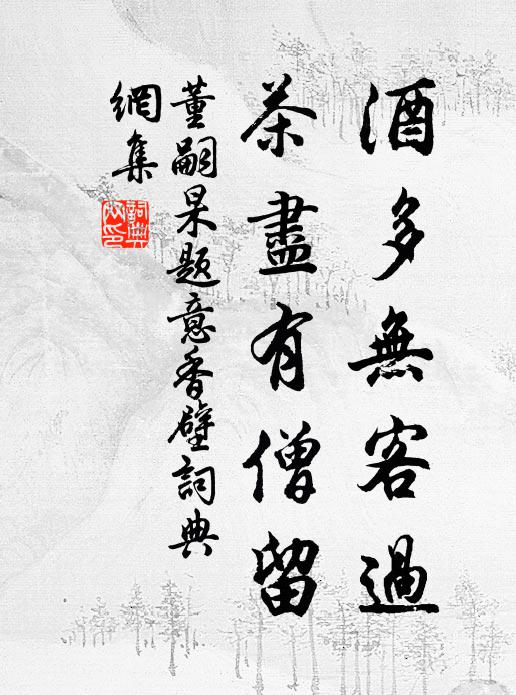 酒多無客過
茶盡有僧留
董嗣杲题意香壁詞典
網集